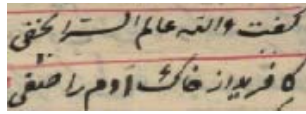 گفت والله عالم السر الخفی
کافرید از خاک آدم را صفی